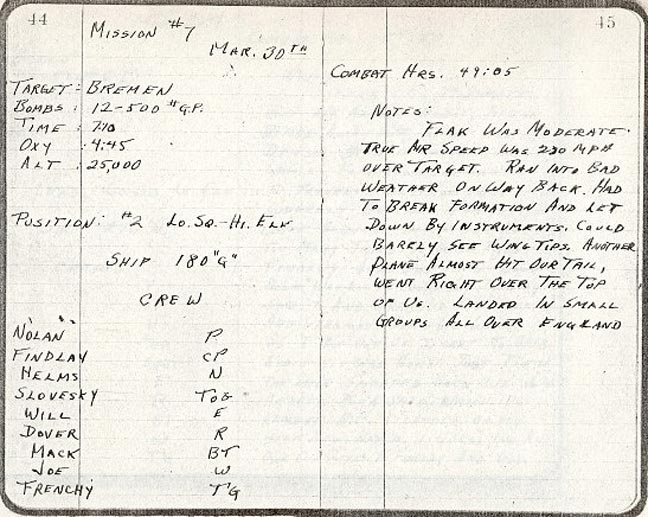 44
Mission #7
Mar. 30TH
Target: Bremen
Bombs: 12-500 # G.P.
Time: 7:10
Oxy: 4:45
Alt: 25,000
Position: #2 Lo. Sq.-Hi. Elm
Ship 180 "G"
Crew
Nolan P
Findlay CP
Helms N
Slovesky TOG
Will E
Dover R
Mack BT
Joe W
Frenchy TG
45
Combat Hrs. 49:05
Notes:
Flak Was Moderate.
True Air Speed Was 230 MPH
Over Target. Ran Into Bad
Weather On Way Back. Had
To Break Formation And Let
Down By Instruments. Could
Barely See Wing Tips. Another
Plane Almost Hit Our Tail,
Went Right Over The Top
Of Us. Landed In Small
Groups All Over England